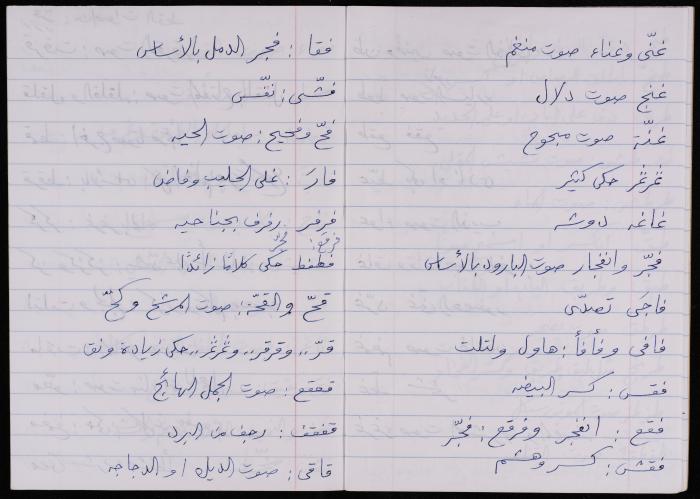 غنّى وغناء صوت منغم
غنج صوت دلال
غنّة صوت مبحوح
غرغر حكى كثير
غاغه دوشه
فجّر وانفجار صوت البارود بالأساس
فاجى تصلّى
فافى وفأفأ : هاول ولتلت
فقس : كسر البيضه
فقع : انفجر وفرقع : فجّر
فقش : كسر وهشم
فقا : فجر الدمل بالأساس
فشّى : نفّس
فحّ وفحيح : صوت الحيه
فار : غلى الحليب وفاض
فرفر رفرف بجناحيه
فرقع : فجر
فطفط حكى كلامًا زائدًا
قحّ والقحّة : صوت المرشح وكحّ
قرّ ،، وقرقر ،، وغرغر ،، حكى زيادة ونق
قعقع : صوت الجمل الهائج
قفقف : رجف من البرد
قاقى : صوت الديك او الدجاجه